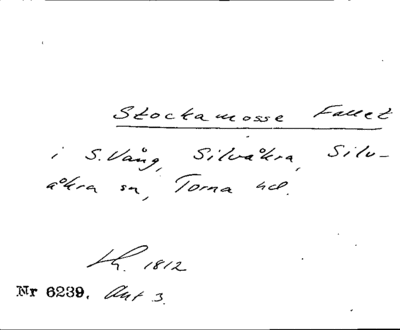 Stockamosse Fallet
i S. Vång, Silvåkra, Silv-
åkra sn, Torna hd.
1812
Nr 6239. Akt 3.